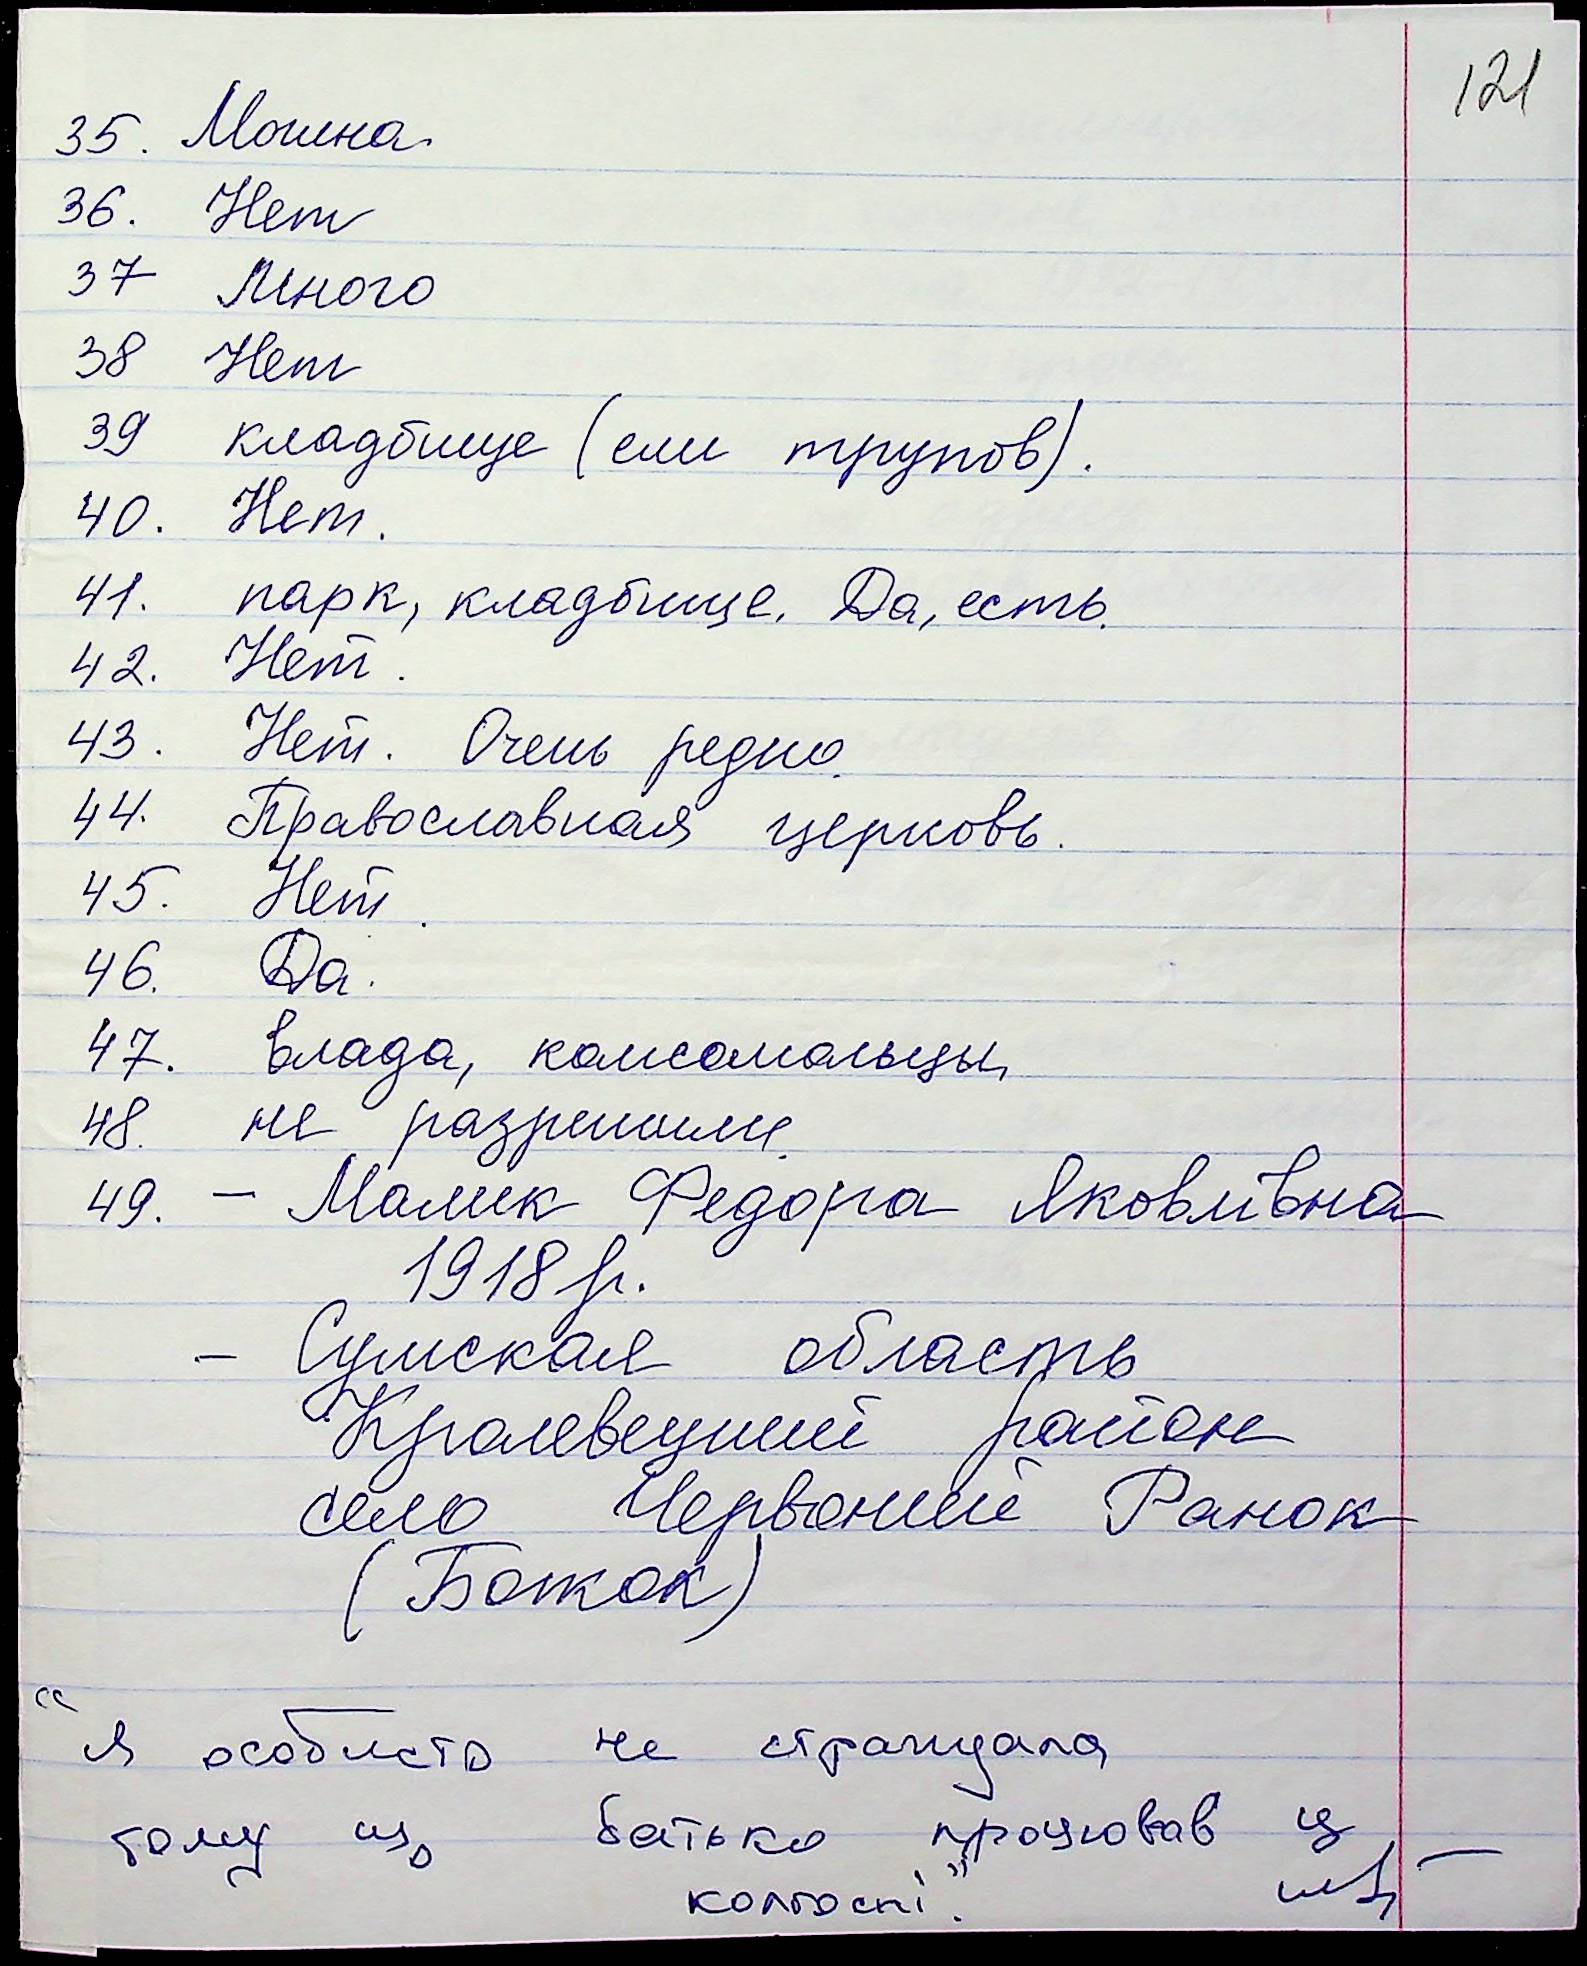 121
35. Мошна.
36. Нет
37 Много
38 Нет
39 кладбище (ели трупов).
40. Нет.
41. парк, кладбище. Да, есть.
42. Нет.
43. Нет. Очень редко.
44. Православная церковь.
45. Нет.
46. Да.
47. влада, комсомольцы,
48. не разрешили.
49. – Малик Федора Яковлівна
1918 р.
– Сумская область
Кролевецкий район
село Червоний Ранок
(Божок)
"Я особисто не страждала,
тому що батько працював у
колгоспі."